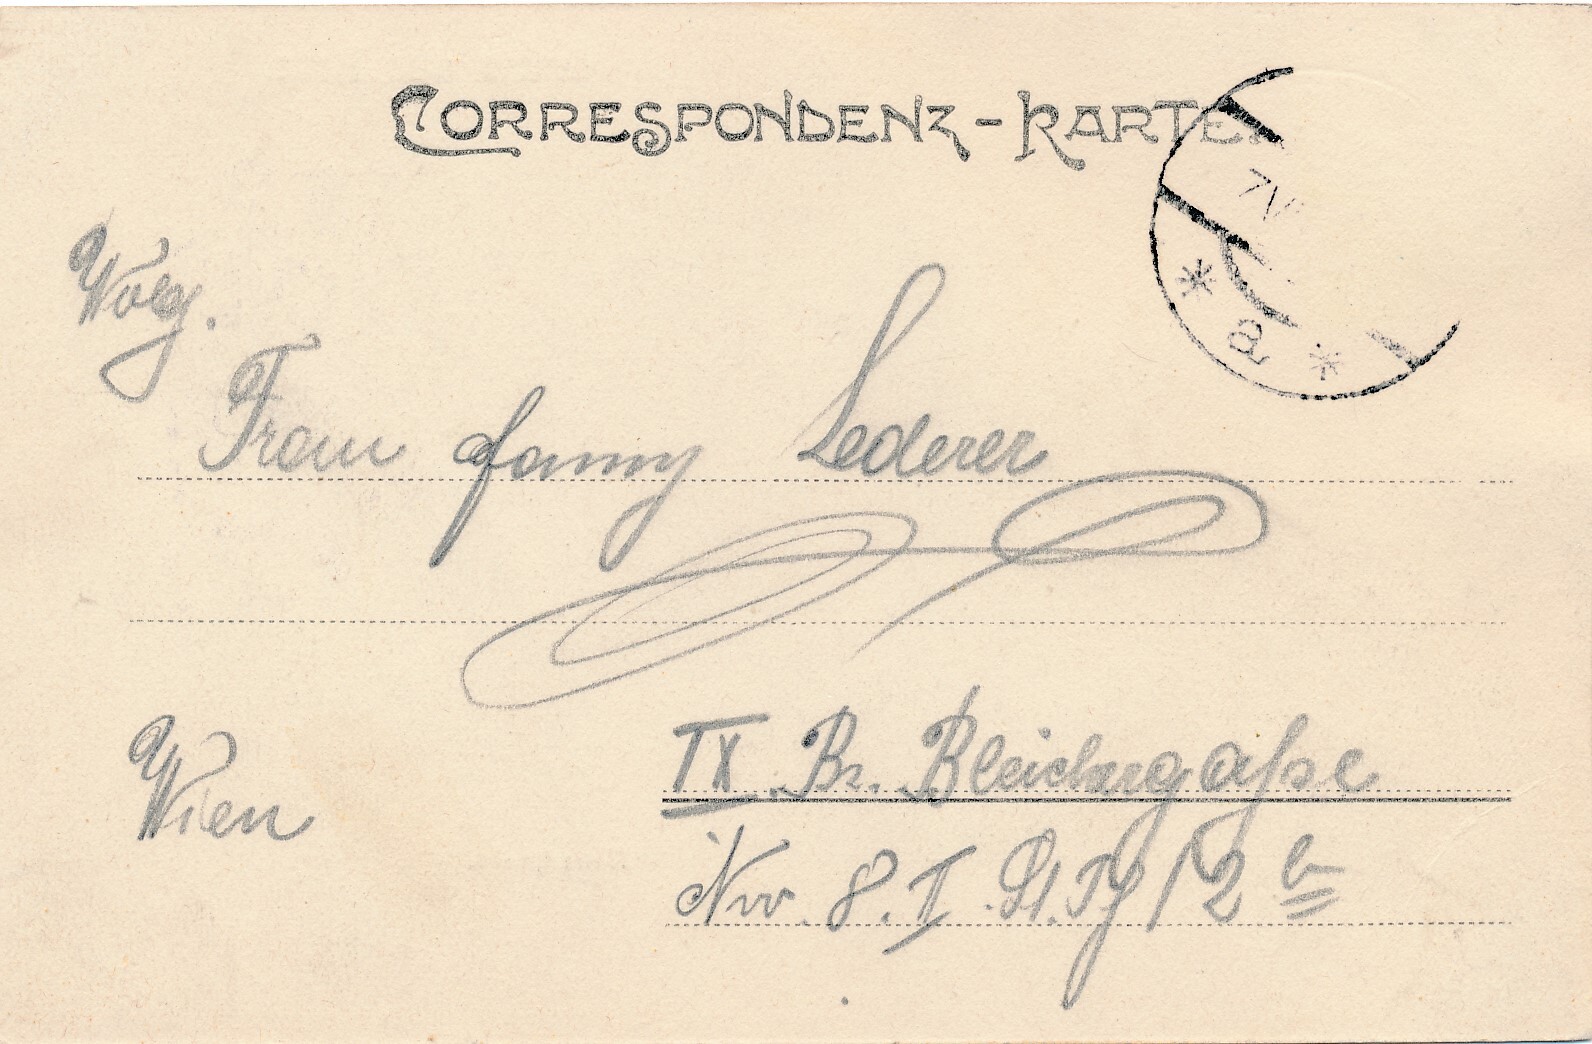 CORRESPONDENZ-KARTE.
7 V
* a *
Wolg.
Frau Fanny Lederer
Wien
IX. Bz. Bleichergasse
Nro. 8. II. St. Th 12 b